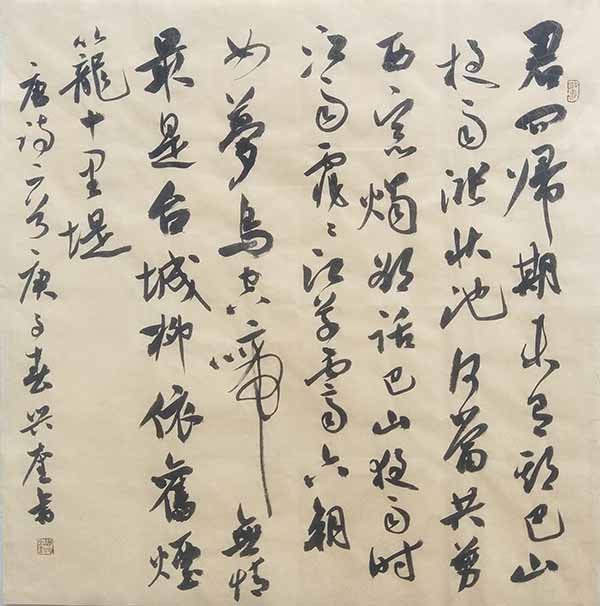 君問歸期未有期巴山
夜雨漲秋池何當共剪
西窗燭卻話巴山夜雨時
江雨霏霏江草齊六朝
如夢鳥空啼無情
最是台城柳依舊煙
籠十里堤
唐詩二首庚子春興奎書